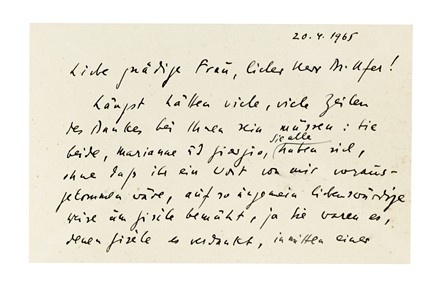 20.4.1965
Liebe gnädige Frau, lieber Herr Dr. Ufer!
Längst hätten viele, viele Zeilen
des Dankes bei Ihnen sein müssen: Sie
beide, Marianne und Giorgio,
Sie alle
haben sich,
ohne daß ich ein Wort von mir voraus-
gekommen wäre, auf so ungemein liebenswürdige
Weise um Gisèle bemüht, ja Sie waren es,
denen Gisèle es verdankt, inmitten einer